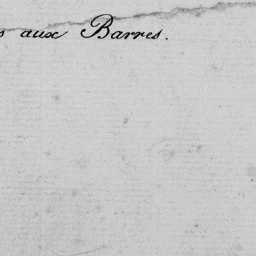 s aux Barres.